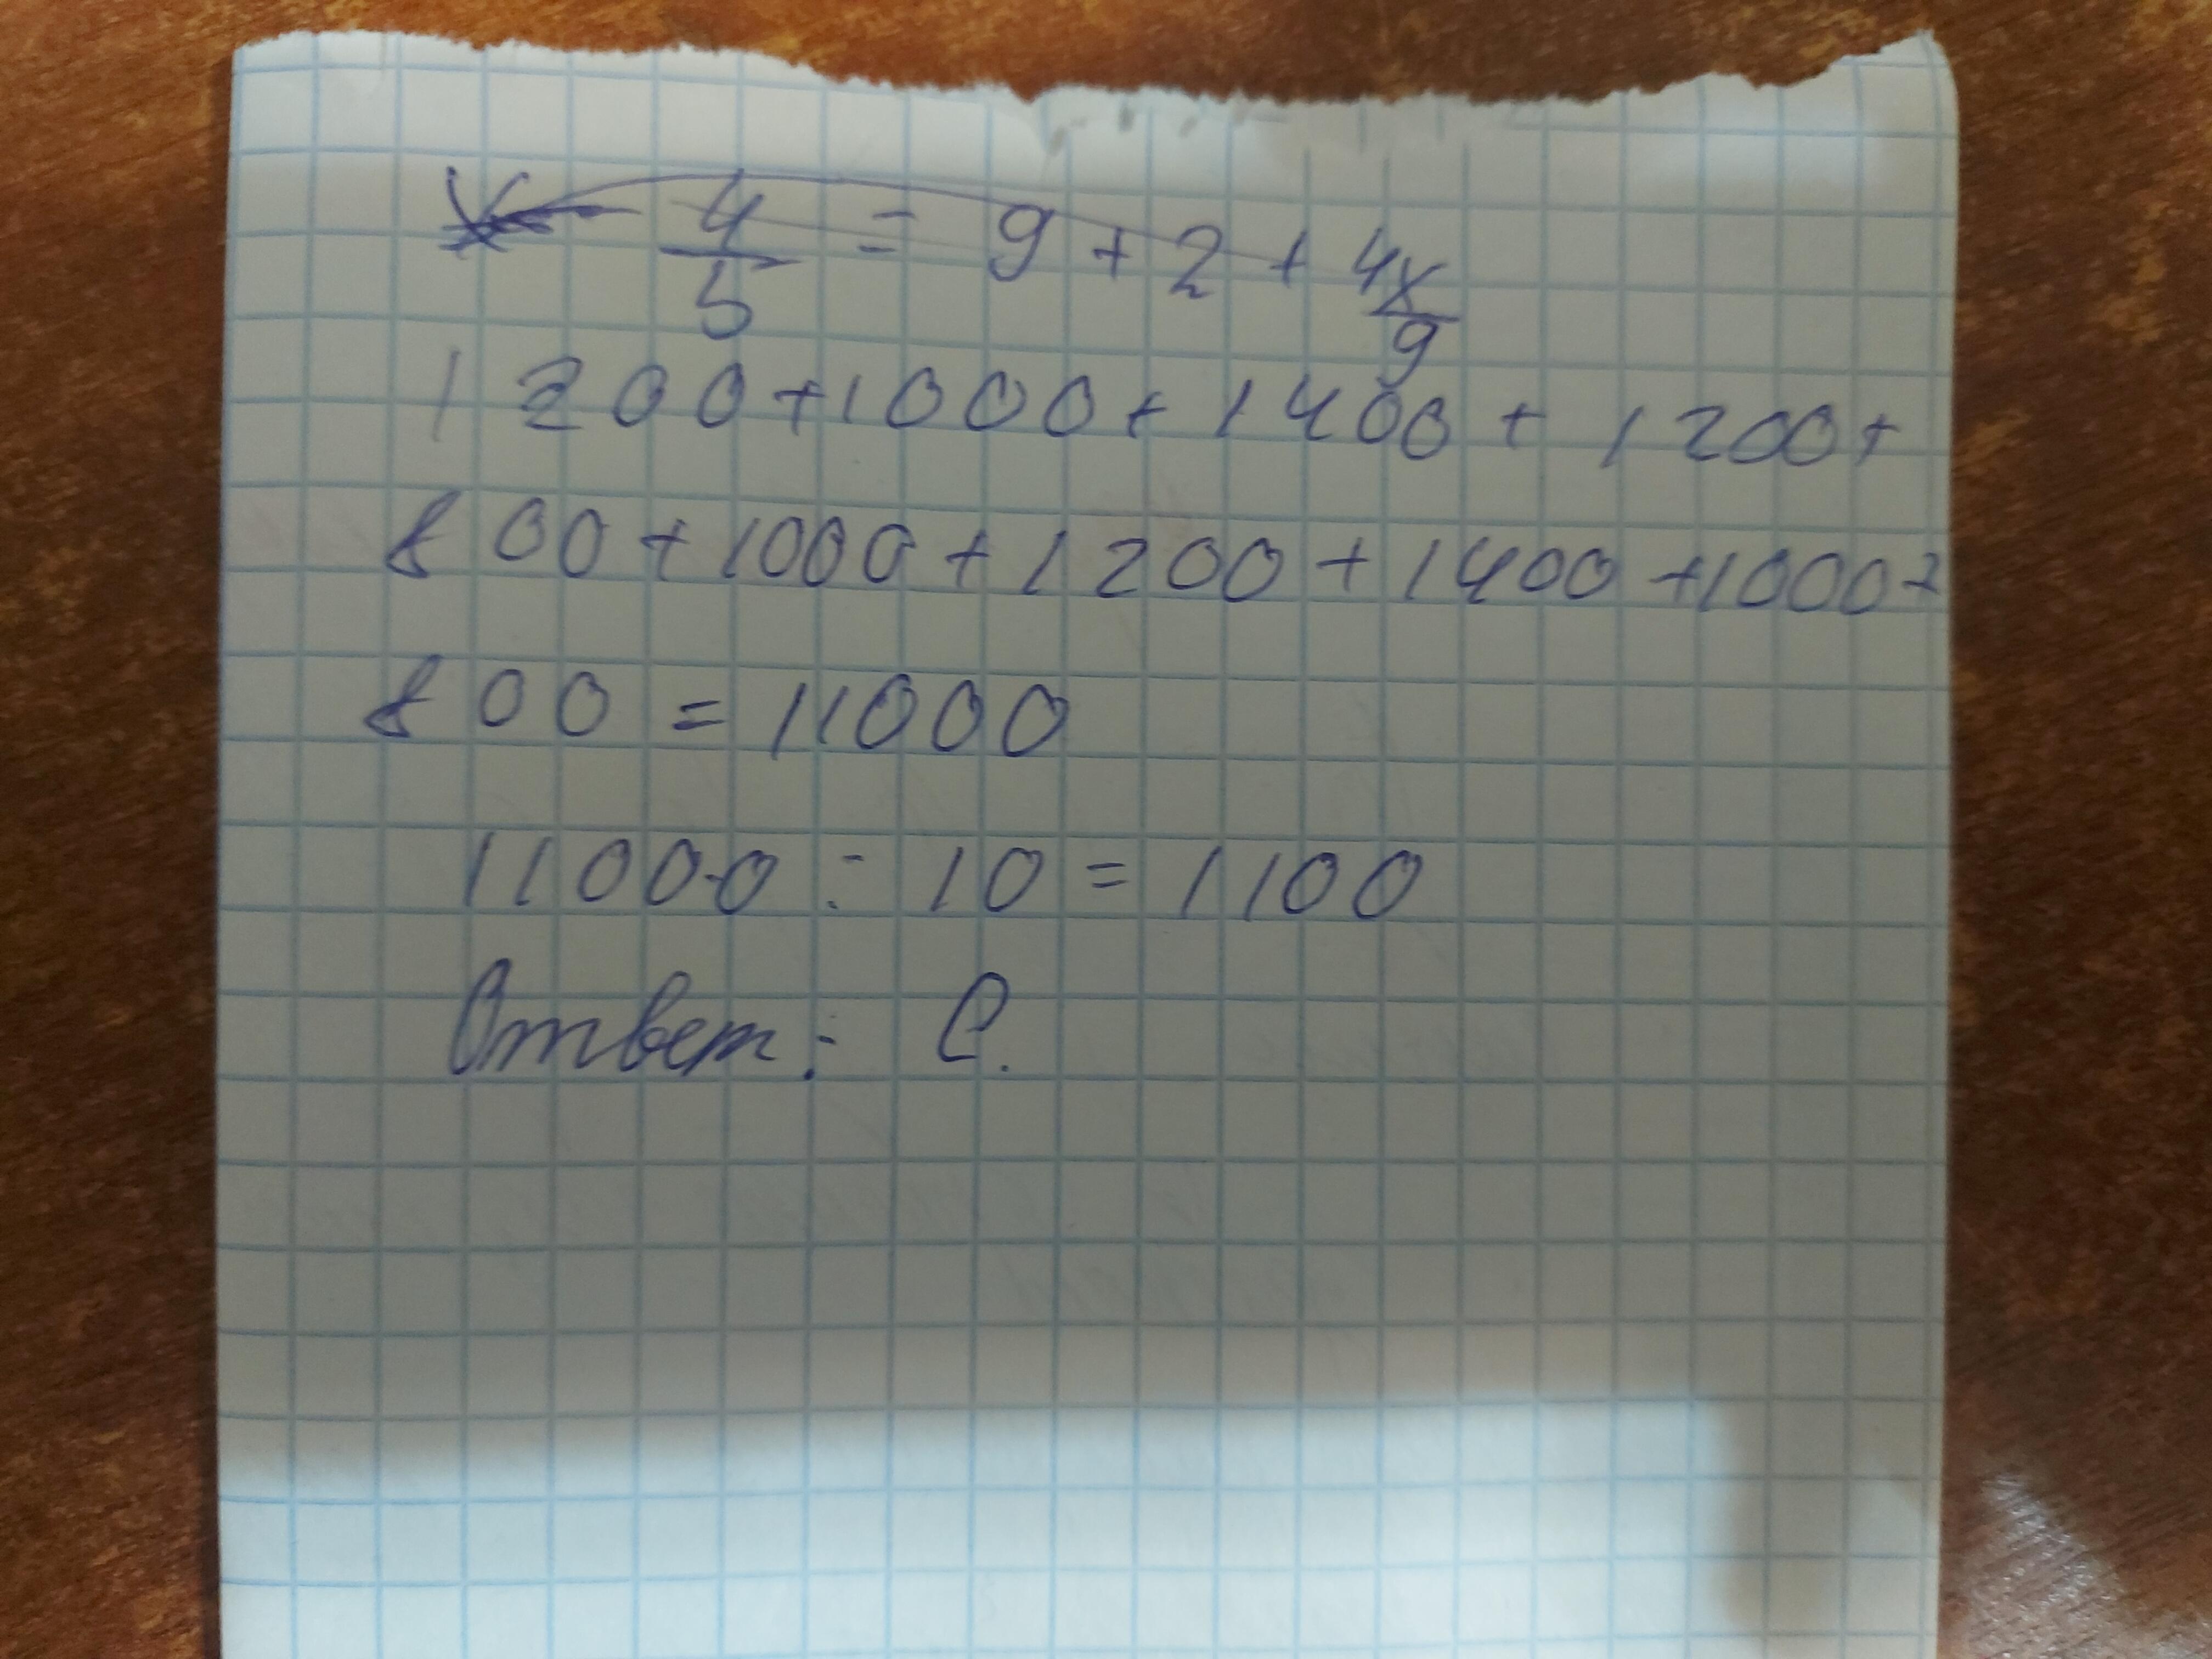 x 4/5 = 9 + 2 + 4x/9
1200+1000+1400+1200+
800+1000+1200+1400+1000+
800 = 11000
11000 : 10 = 1100
Ответ: С.